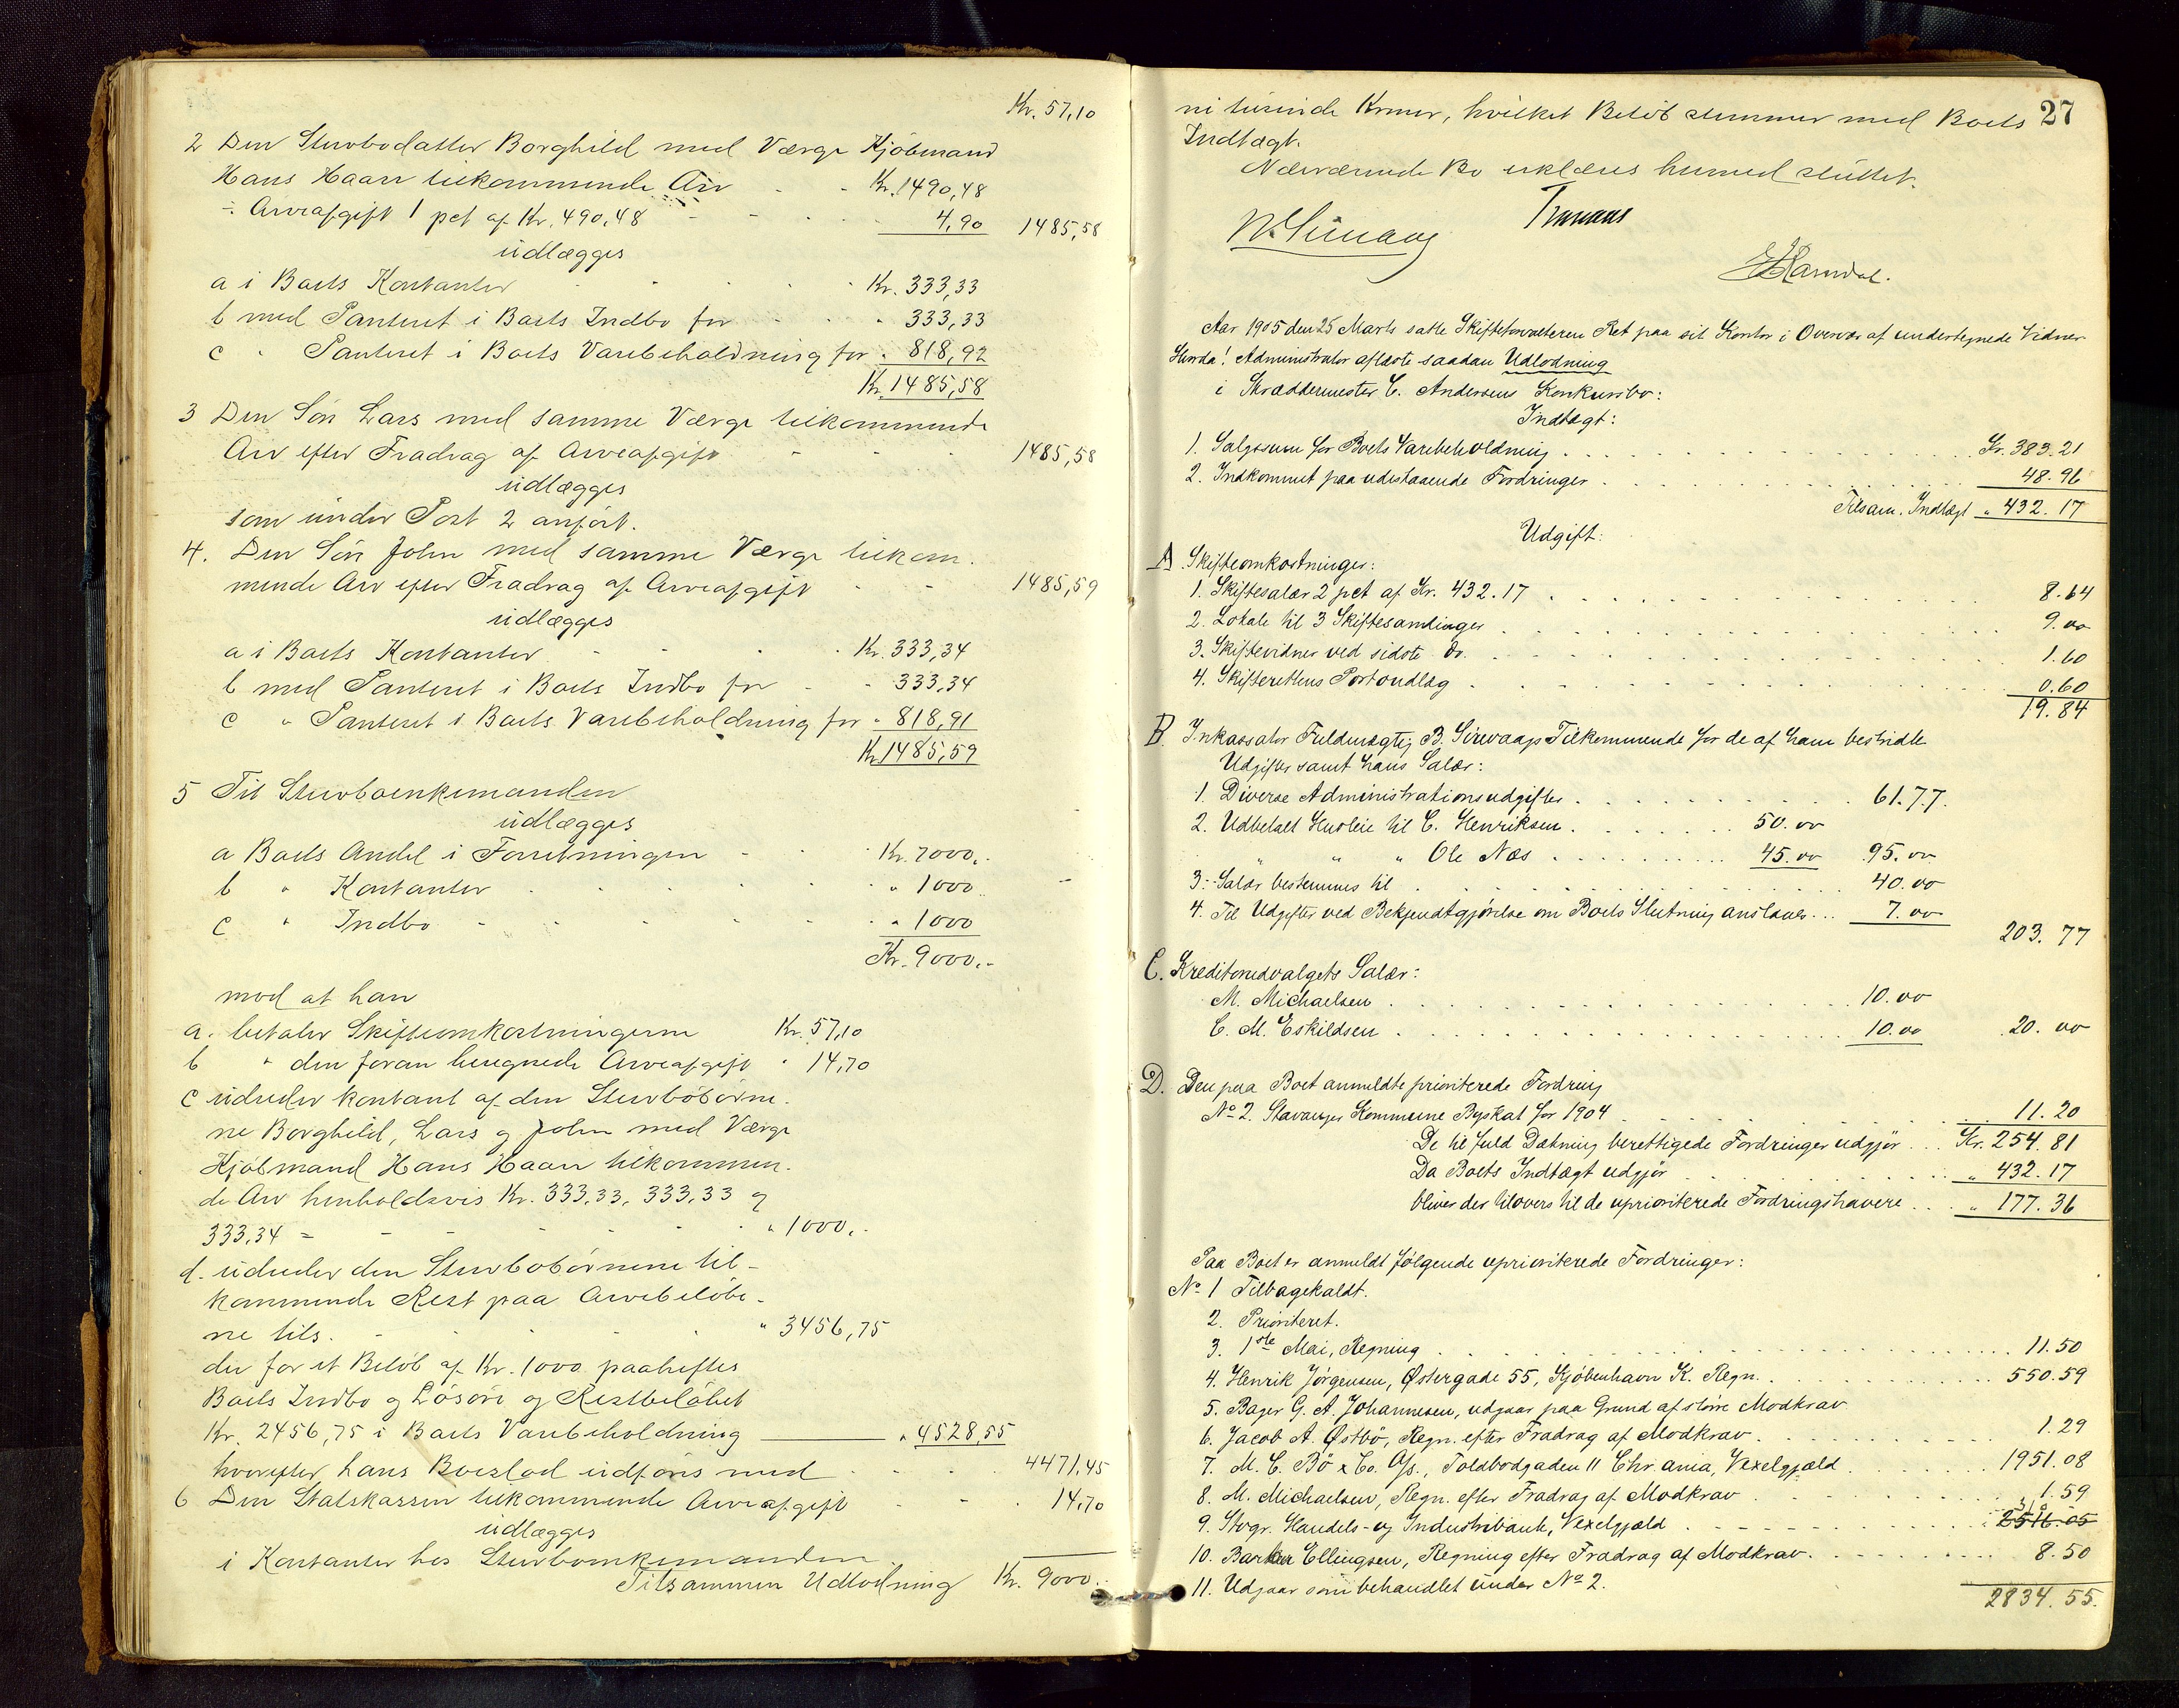 Kr. 57,10
2 Den Stervbodatter Borghild med Værge Kjöbmand
Hans Haarr tilkommende Arv - - Kr. 1490,48
÷ Arveafgift 1 pct af Kr. 490,48 - - - 4,90 1485,58
udlægges
a i Boets Kontanter - - - Kr. 333,33
b med Panteret i Boets Indbo for - - 333,33
c " Panteret i Boets Varebeholdning for " 818,92
Kr. 1485,58
3 Den Sön Lars med samme Værge tilkommende
Arv efter Fradrag af Arveafgift - - - 1485,58
udlægges
som under Post 2 anfört.
4. Den Sön John med samme Værge tilkom-
mende Arv efter Fradrag af Arveafgift - - 1485,59
udlægges
a i Boets Kontanter - - - Kr. 333,34
b med Panteret i Boets Indbo for - - 333,34
c " Panteret i Boets Varebeholdning for " 818,91
Kr. 1485,59
5 Til Stervboenkemanden
udlægges
a Boets Andel i Forretningen - - Kr. 7000,-
b " Kontanter - - - " 1000
c " Indbo - - - " 1000
Kr. 9000.-
mod at han
a. betaler Skifteomkostningerne Kr. 57,10
b " den foran beregnede Arveafgift " 14,70
c udreder kontant af den Stervbobörne-
ne Borghild, Lars og John med Værge
Kjöbmand Hans Haarr tilkommen-
de Arv henholdsvis Kr. 333,33, 333,33 og
333,34 - - - - " 1000,-
d. udreder den Stervbobörnene til-
kommende Rest paa Arvebelöbe-
ne tils. - - - " 3456,75
der for et Belöb af Kr. 1000 paaheftes
Boets Indbo og Lösöre og Restbelöbet
Kr. 2456,75 i Boets Varebeholdning " 4528,55
hvorefter hans Boeslod udföres med - - 4471,45
6 Den Statskassen tilkommende Arveafgift - - 14,70
udlægges
i Kontanter hos Stervboenkemanden.
Tilsammen Udlodning Kr. 9000.-
27
ni tusinde Kroner, hvilket Belöb stemmer med Boets
Indtægt.
Nærværende Bo erklæres hermed sluttet.
Aar 1905 den 25 Marts satte Skifteforvalteren Ret paa sit Kontor i Overvær af undertegnede Vidner
Hvorda! Administrator aflæste saadan Udlodning
i Skræddermester C. Andersens Konkursbo:
Indtægt:
1. Salgssum for Boets Varebeholdning . . . Kr. 383.21
2. Indkommet paa udestaaende Fordringer . . . 48.96
Tilsam. Indtægt " 432.17
Udgift:
A. Skifteomkostninger:
1. Skiftesalær 2 pct af Kr. 432.17 . . . 8.64
2. Lokale til 3 Skiftesamlinger . . . 9.00
3. Skiftevidner ved sidste Do. . . . 1.60
4. Skifterettens Portoudlæg . . . 0.60
19.84
B. Inkassator Fuldmægtig B. Sirevaags Tilkommende for de af ham bestridte
Udgifter samt hans Salær:
1. Diverse Administrationsudgifter . . . 61.77.
2. Udbetalt Husleie til C. Henriksen . . . 50.00
" " " Ole Næs . . . 45.00 95.00
3. Salær bestemmes til . . . 40.00
4. Til Udgifter ved Bekjendtgjörelse om Boets Slutning anslaaes . . . 7.00
203.77
C. Kreditorudvalgets Salær:
M. Michaelsen . . . 10.00
C. M. Eskildsen . . . 10.00 20.00
D. Den paa Boet anmeldte prioriterede Fordring
No 2. Stavanger Kommune Byskat for 1904 . . . 11.20
De til fuld Dækning berettigede Fordringer udgjör . . . Kr. 254.81
Da Boets Indtægt udgjör . . . " 432.17
bliver der tilovers til de uprioriterede Fordringshavere . . . " 177.36
Paa Boet er anmeldt fölgende uprioriterede Fordringer:
No 1 Tilbagekaldt.
2. Prioriteret.
3. 1ste Mai, Regning . . . 11.50
4. Henrik Jörgensen, Østergade 55, Kjöbenhavn K. Regn. . . . 550.59
5. Bager G. A. Johannesen, udgaar paa Grund af större Modkrav
6. Jacob A. Østbö, Regn. efter Fradrag af Modkrav . . . 1.29
7. M. C. Bö & Co. A/s., Toldbodgaden 11 Chr.ania, Vexelgjæld . . . 1951.08
8. M. Michaelsen, Regn. efter Fradrag af Modkrav . . . 1.59
9. Stvgr. Handels- og Industribank, Vexelgjæld . . . 310
10. Ellingsen, Regning efter Fradrag af Modkrav . . . 8.50
11. Udgaar som behandlet under No 2.
2834.55.